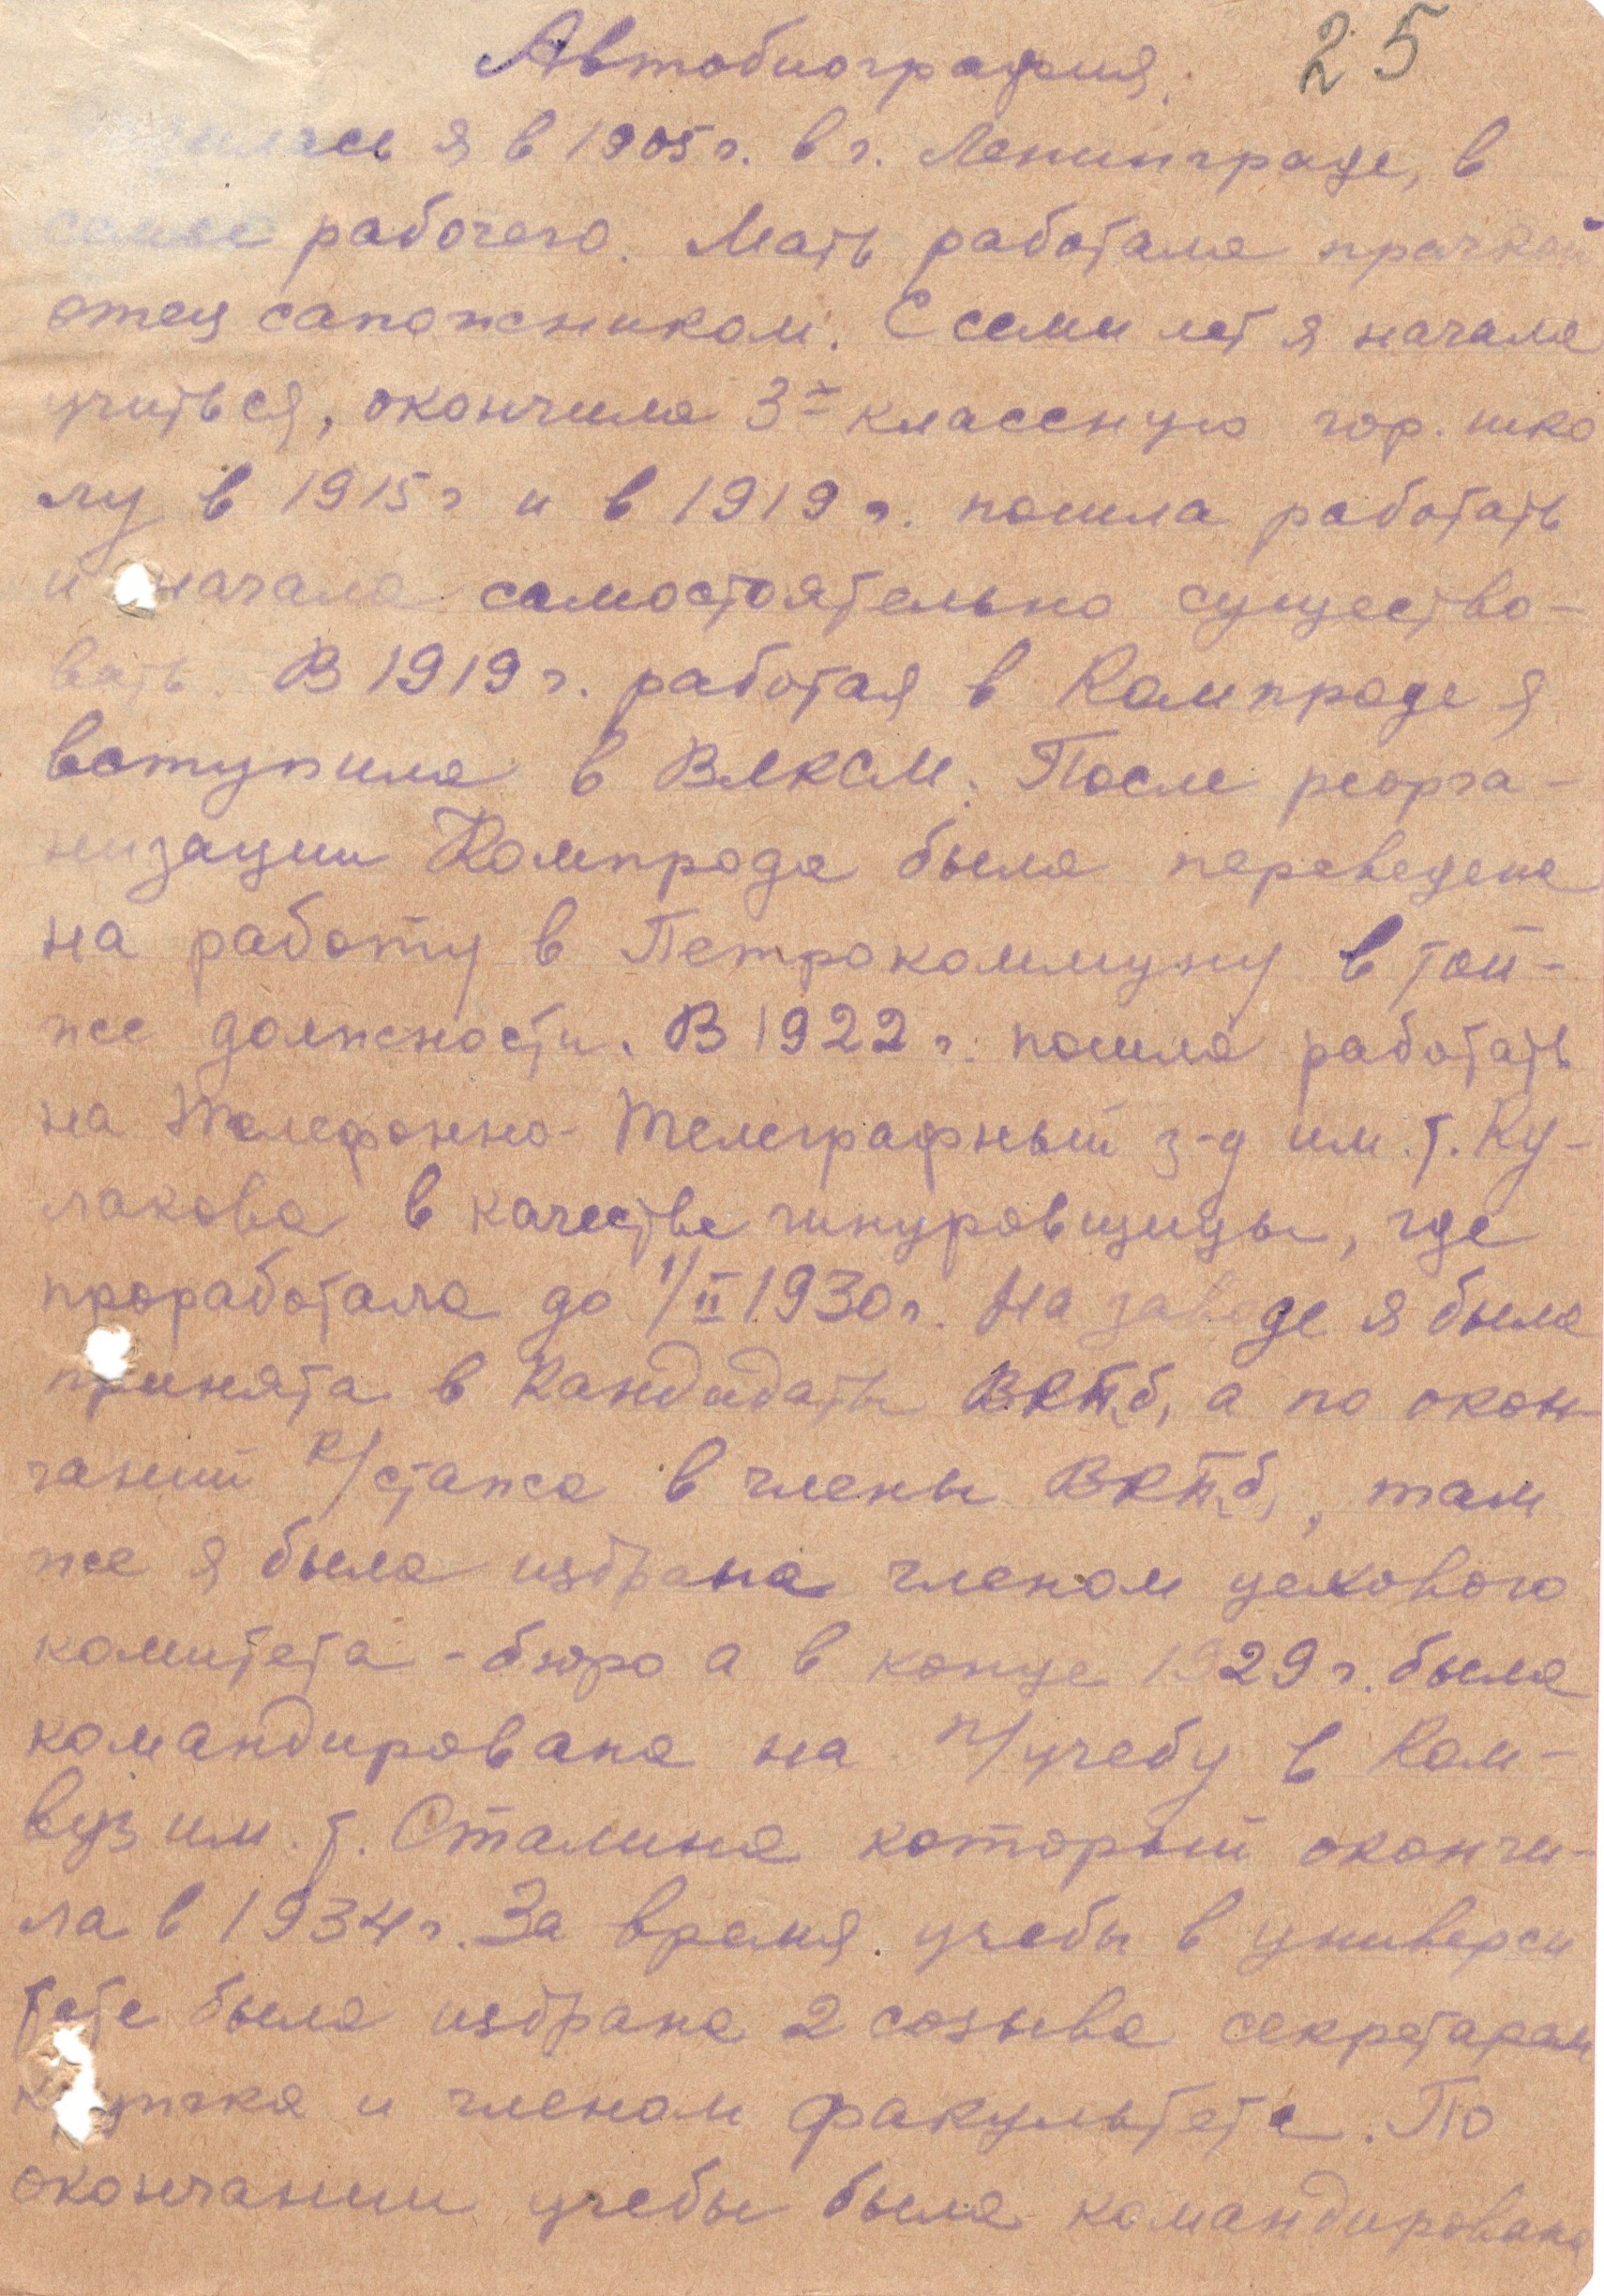 Автобиография. 25
Родилась я в 1905 г. в г. Ленинграде, в
семье рабочего. Мать работала прачкой
отец сапожником. С семи лет я начала
учиться, окончила 3х классную гор. шко
лу в 1915 г и в 1919 г. пошла работать
и начала самостоятельно существо-
вать. В 1919 г. работая в Компроде я
вступила в ВЛКСМ. После реорга-
низации Компрода была переведена
на работу в Петрокоммуну в той-
же должности. В 1922 г. пошла работать
на Телефонно-Телеграфный з-д им. т. Ку-
лакова в качестве шнуровщицы, где
проработала до 1/II 1930 г. На заводе я была
принята в кандидаты ВКП(б), а по окон-
чании К/стажа в члены ВКП(б), там
же я была избрана членом цехового
комитета - бюро а в конце 1929 г. была
командирована на п/учебу в Ком-
вуз им. т. Сталина который окончи-
ла в 1934 г. За время учебы в универси
тете была избрана 2 созыва секретарем
кружка и членом факультета. По
окончании учебы была командирована